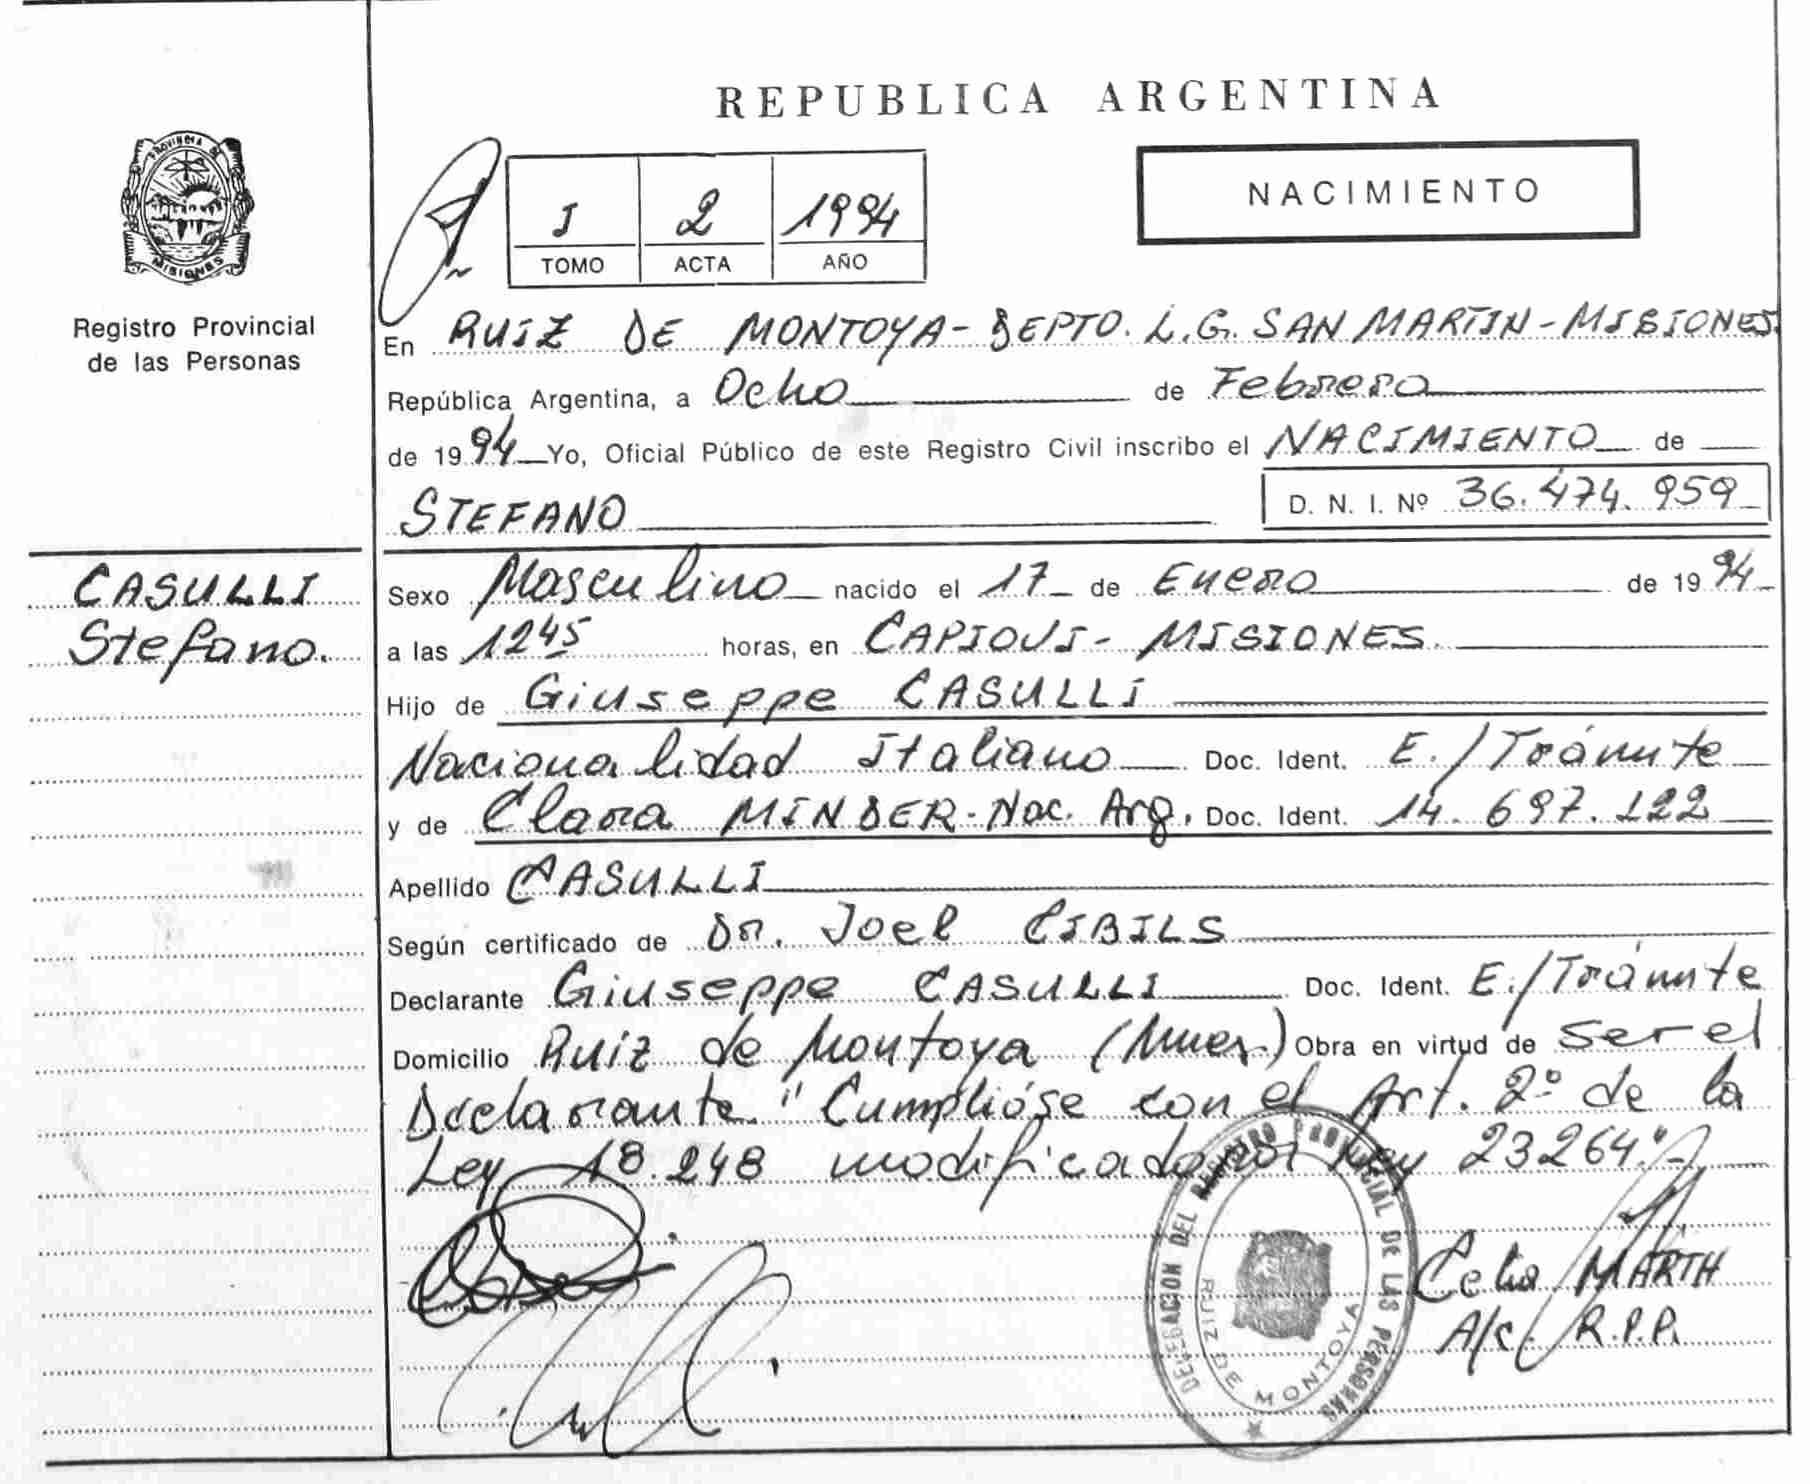 REPUBLICA ARGENTINA
PROVINCIA DE
MISIONES
Registro Provincial
de las Personas
I 2 1994
TOMO ACTA AÑO
NACIMIENTO
En RUIZ DE MONTOYA - DEPTO. L.G. SAN MARTIN - MISIONES.
República Argentina, a Ocho de Febrero
de 1994 Yo, Oficial Público de este Registro Civil inscribo el NACIMIENTO de
STEFANO D. N. I. Nº 36.474.959
CASULLI
Stefano.
Sexo Masculino nacido el 17 de Enero de 1994
a las 1245 horas, en CAPIOVI - MISIONES.
Hijo de Giuseppe CASULLI
Nacionalidad Italiano Doc. Ident. E./Trámite
y de Clara MINDER - Nac. Arg. Doc. Ident. 14.697.122
Apellido CASULLI
Según certificado de Dr. Joel CIBILS
Declarante Giuseppe CASULLI Doc. Ident. E./Trámite
Domicilio Ruiz de Montoya (Mnes.) Obra en virtud de ser el
Declarante. "Cumplióse con el Art. 2º de la
Ley 18.248 modificado por Ley 23264".-
DELEGACION DEL REGISTRO PROVINCIAL DE LAS PERSONAS
RUIZ DE MONTOYA
Celia MARTH
A/c. R.P.P.